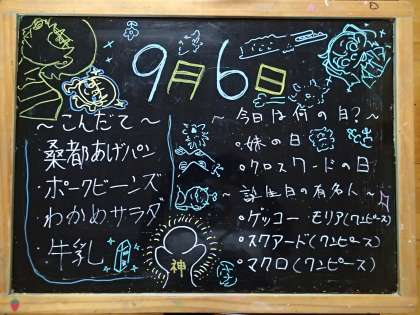 9月6日
～こんだて～
桑都あげパン
・ポークビーンズ
わかめサラダ
・牛乳
神
～今日は何の日?～
・妹の日
・クロスワードの日
～誕生日の有名人～
・ゲッコー・モリア(ワンピース)
・スクアード(ワンピース)
・マクロ(ワンピース)